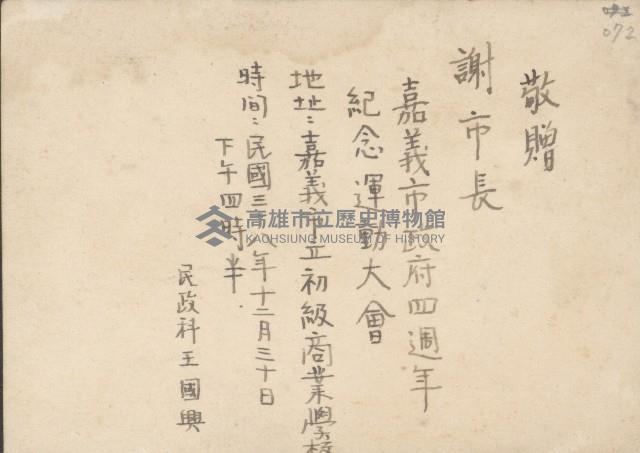 072
敬贈
謝市長
嘉義市政府四週年
紀念運動大會
地址：嘉義市立初級商業學校
時间：民國三 年十二月三十日
下午四時半.
民政科王國興
高雄市立歷史博物館
KAOHSIUNG MUSEUM OF HISTORY